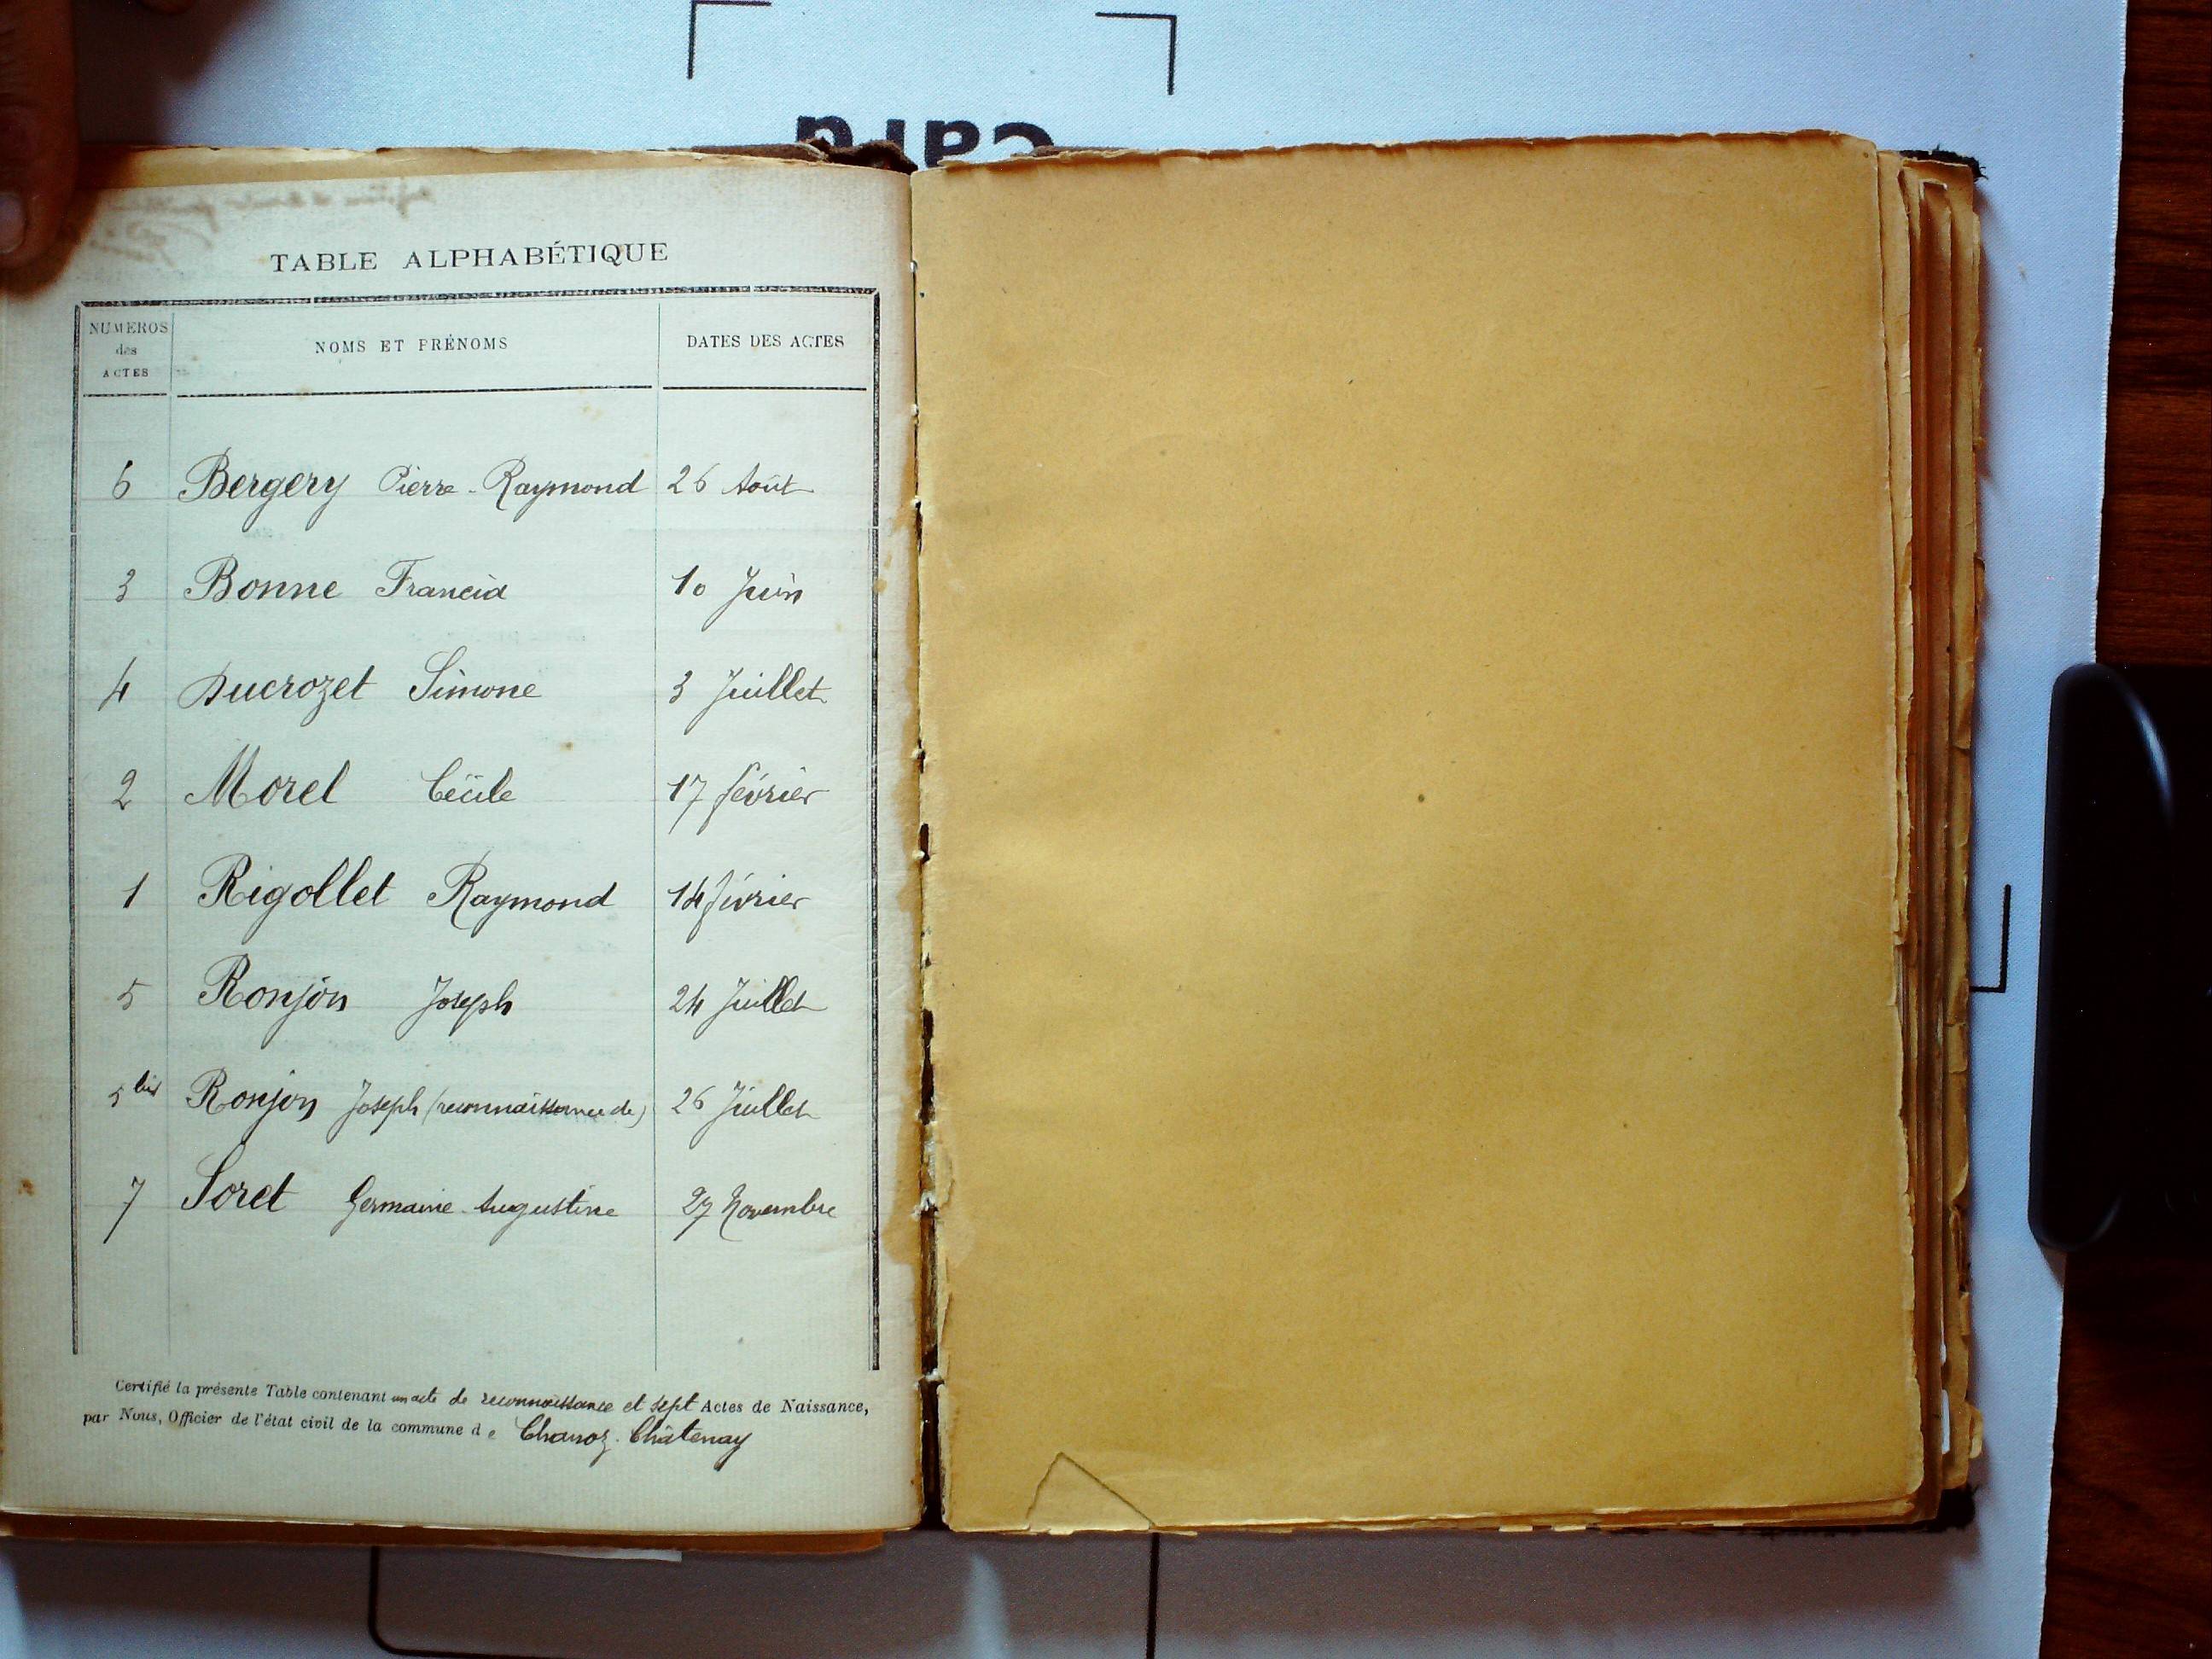 TABLE ALPHABÉTIQUE
NUMEROS des ACTES NOMS ET PRÉNOMS DATES DES ACTES
6 Bergery Pierre-Raymond 26 Août
3 Bonne Francia 10 Juin
4 Ducrozet Simone 3 Juillet
2 Morel Cécile 17 février
1 Rigollet Raymond 14 février
5 Ronjon Joseph 24 Juillet
5 bis Ronjon Joseph (reconnaissance de) 26 Juillet
7 Soret Germaine-Augustine 27 Novembre
Certifié la présente Table contenant un acte de reconnaissance et sept Actes de Naissance,
par Nous, Officier de l'état civil de la commune de Chanoz-Châtenay